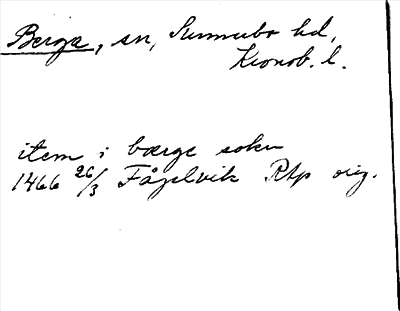 Berga, sn, Sunnerbo hd,
Kronob. l.
item i bærge sokn
1466 26/3 Fågelvik Rtp orig.